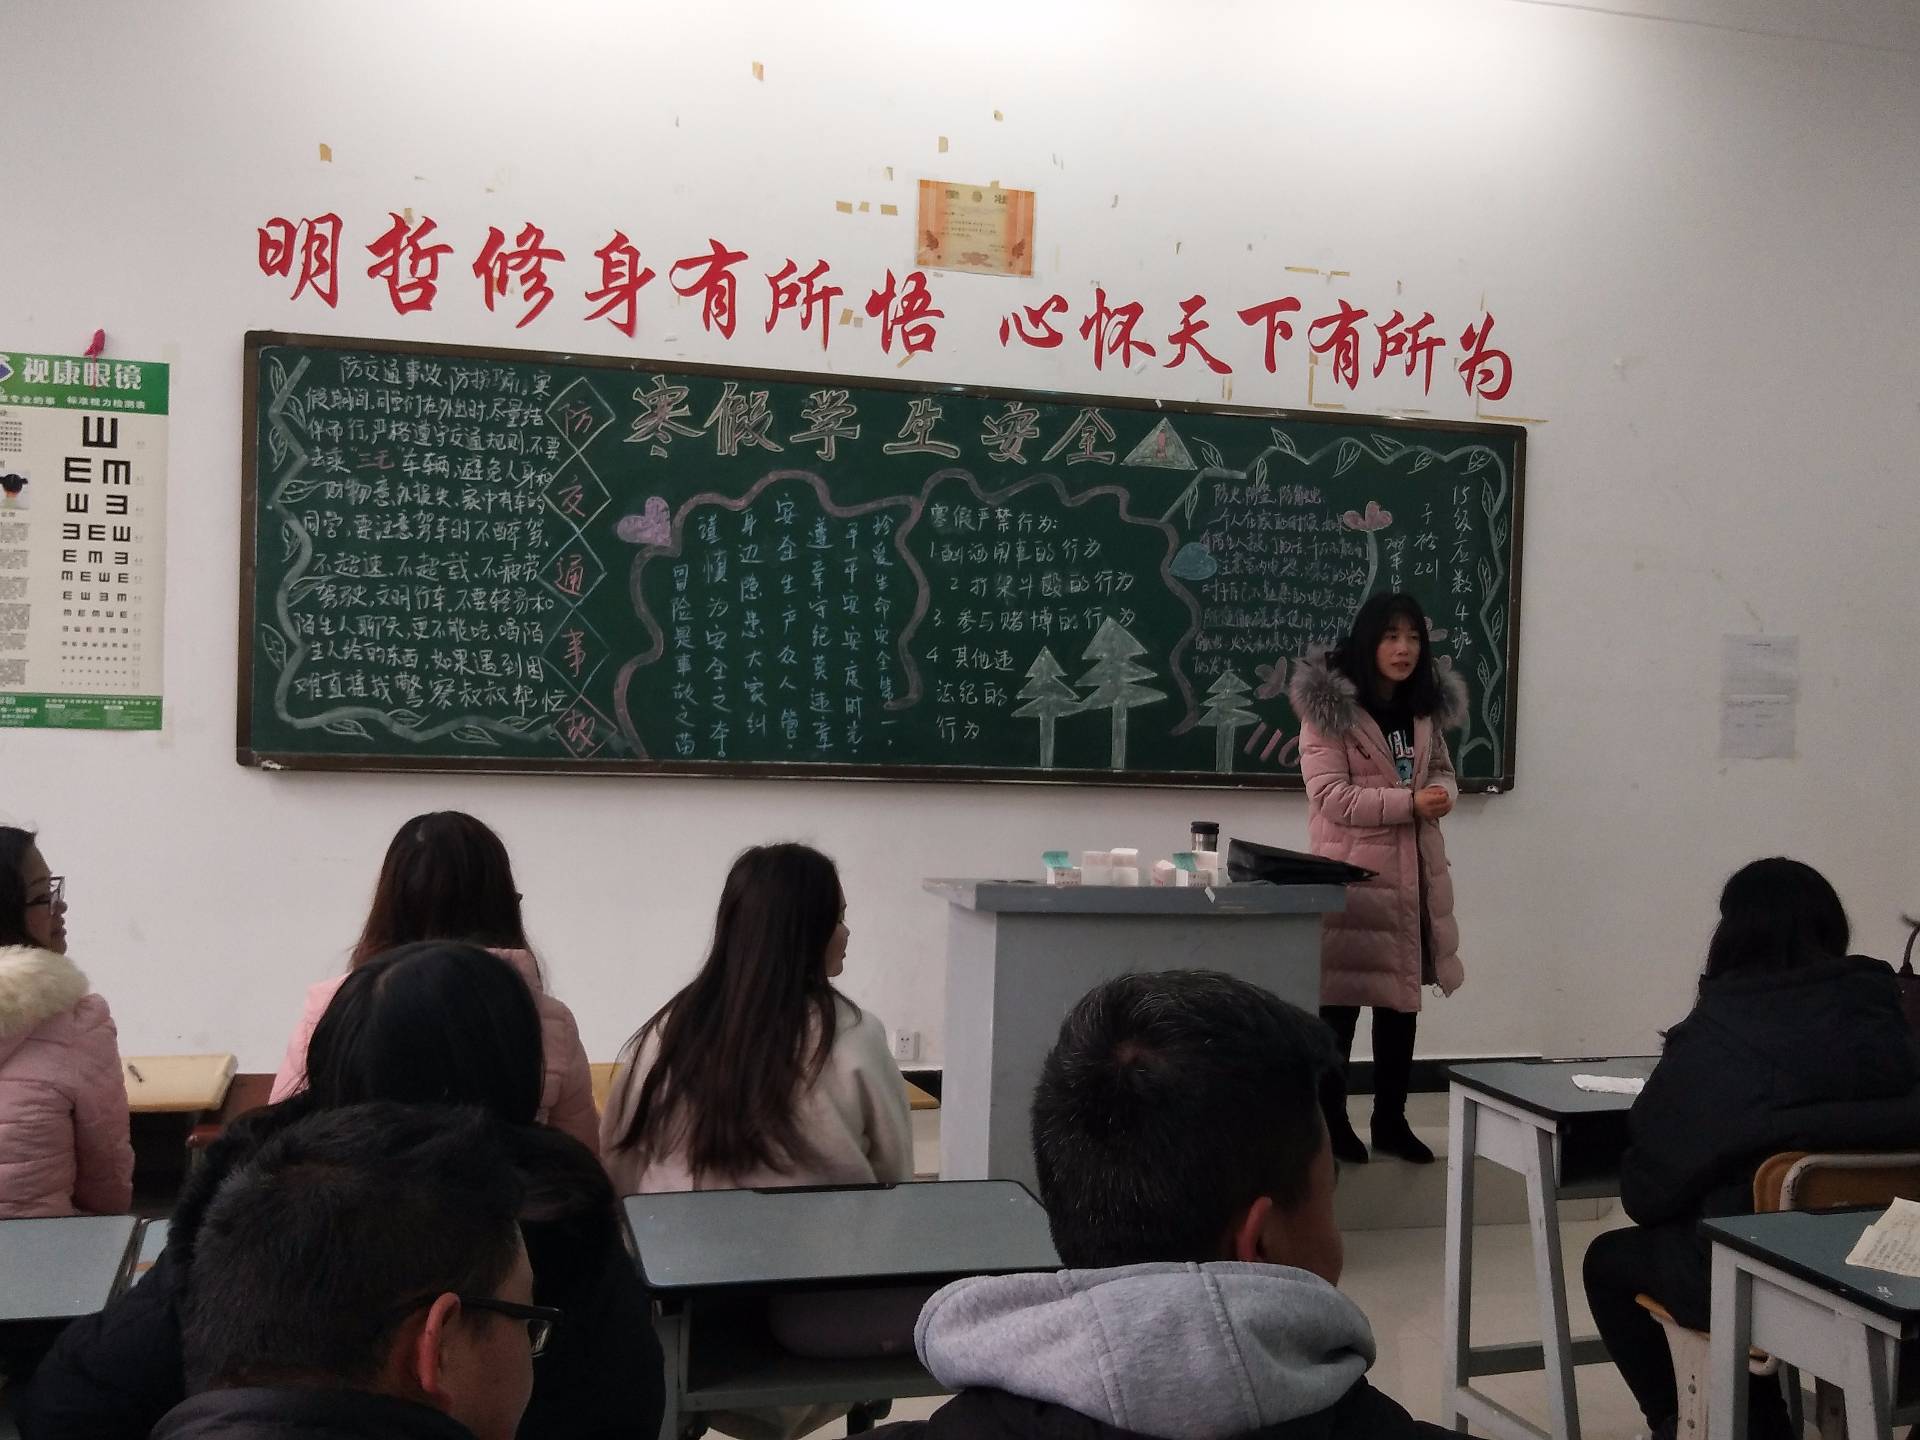 明哲修身有所悟 心怀天下有所为
视康眼镜
标准视力检测表
寒假学生安全
防交通事故,防拐骗。寒
假期间,同学们在外出时,尽量结
伴而行,严格遵守交通规则,不要
去乘"三无"车辆,避免人身和
财物意外损失,家中有车的
同学,要注意驾车时不醉驾、
不超速、不超载、不疲劳
驾驶,文明行车,不要轻易和
陌生人聊天,更不能吃、喝陌
生人给的东西,如果遇到困
难直接找警察叔叔帮忙
防交通事故
珍爱生命安全第一,
平平安安度时光。
遵章守纪莫违章
安全生产众人管。
身边隐患大家纠
谨慎为安全之本。
冒险是事故之苗
寒假严禁行为:
1.酗酒闹事的行为
2.打架斗殴的行为
3.参与赌博的行为
4.其他违
法纪的
行为
防火、防盗、防触电
一个人在家的时候
的发生。
15级应数4班
子裕221
110